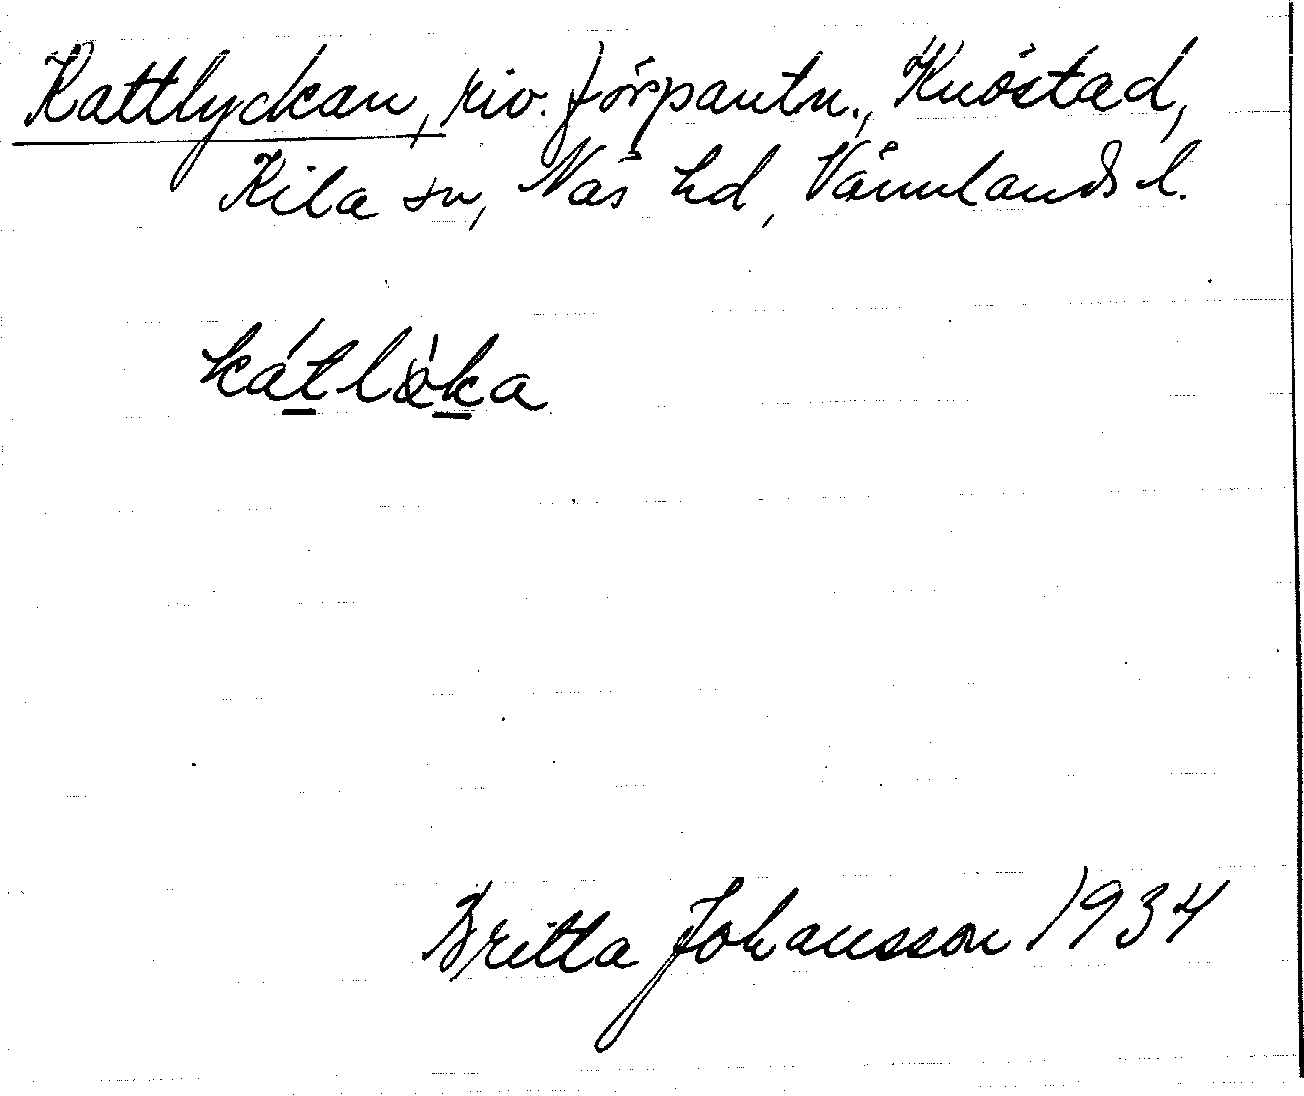 Kattlyckan, riv. förpantn., Knöstad,
Kila sn, Näs hd, Värmlands l.
kátlø̀ka
Britta Johansson 1934